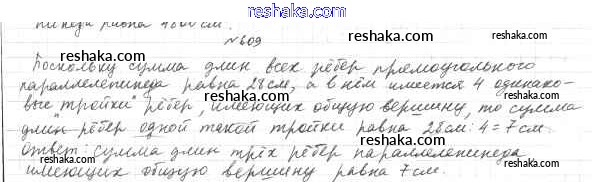 reshaka.com
пипеда равна 4800 см.
№609
Поскольку сумма длин всех рёбер прямоугольного
параллелепипеда равна 28 см, а в нём имеется 4 одинако-
вые "тройки" рёбер, имеющих общую вершину, то сумма
длин рёбер одной такой тройки равна 28 см : 4 = 7 см.
Ответ: сумма длин трёх рёбер параллелепипеда
имеющих общую вершину равна 7 см.
reshaka.com
reshaka.com
reshaka.com
reshaka.com
reshaka.com
reshaka.com
reshaka.com
reshaka.com
reshaka.com